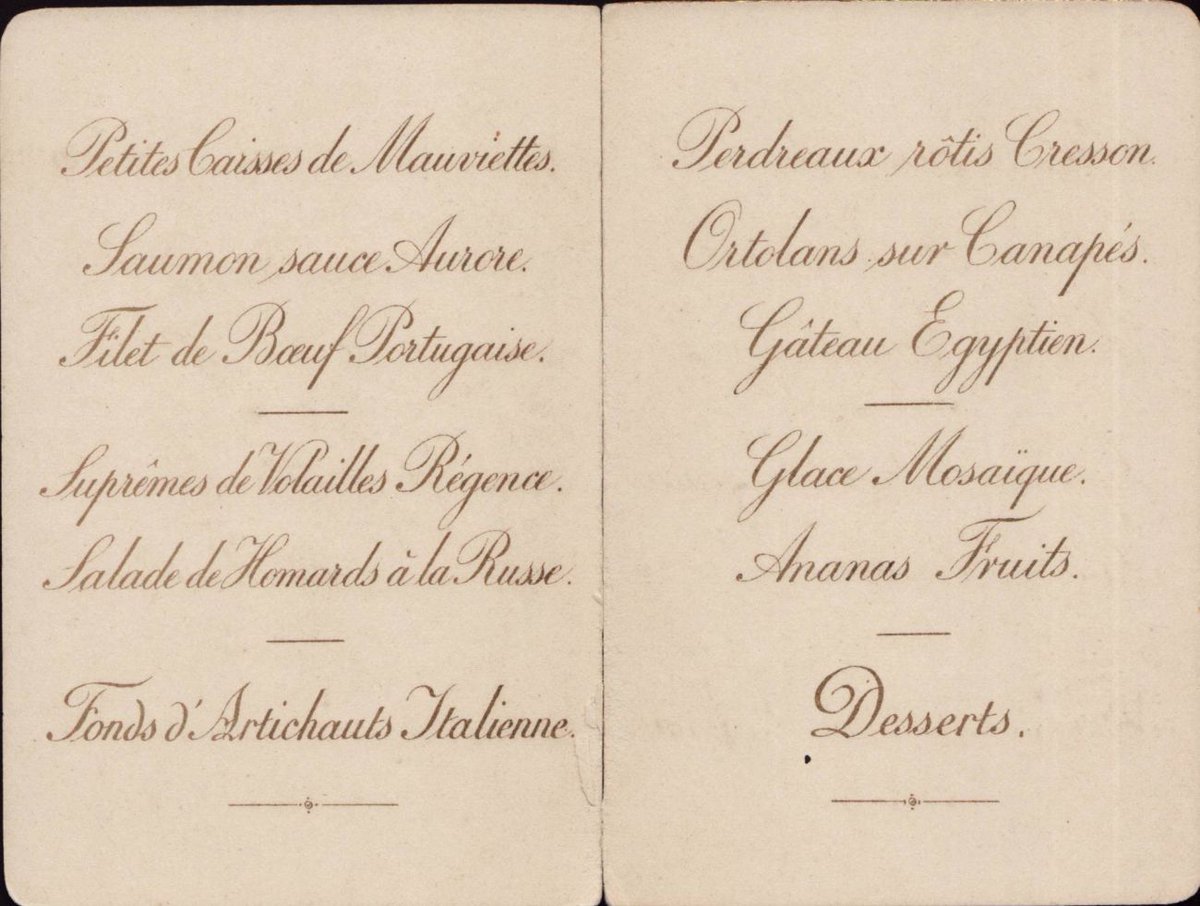 Petites Caisses de Mauviettes.
Saumon sauce Aurore.
Filet de Bœuf Portugaise.
Suprêmes de Volailles Régence.
Salade de Homards à la Russe.
Fonds d'Artichauts Italienne.
Perdreaux rôtis Cresson.
Ortolans sur Canapés.
Gâteau Egyptien.
Glace Mosaïque.
Ananas Fruits.
Desserts.